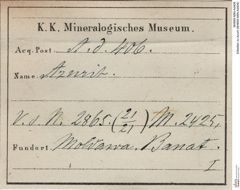 K. K. Mineralogisches Museum.
Acq. Post. A. d. 406.
Name: Azurit.
V. s. N. 2865. (21/21) M. 2425,
Fundort. Moldawa. Banat.
I